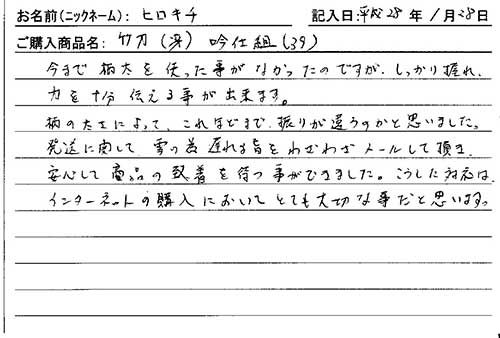 お名前(ニックネーム): ヒロキチ 記入日:平成28年 1月28日
ご購入商品名: 竹刀(冴) 吟仕組(39)
今まで柄太を使った事がなかったのですが、しっかり握れ、
力を十分伝える事が出来ます。
柄の太さによって、これほどまで振りが違うのかと思いました。
発送に関して 雪の為遅れる旨をわざわざメールして頂き、
安心して商品の到着を待つ事ができました。こうした対応は、
インターネットの購入において とても大切な事だと思います。